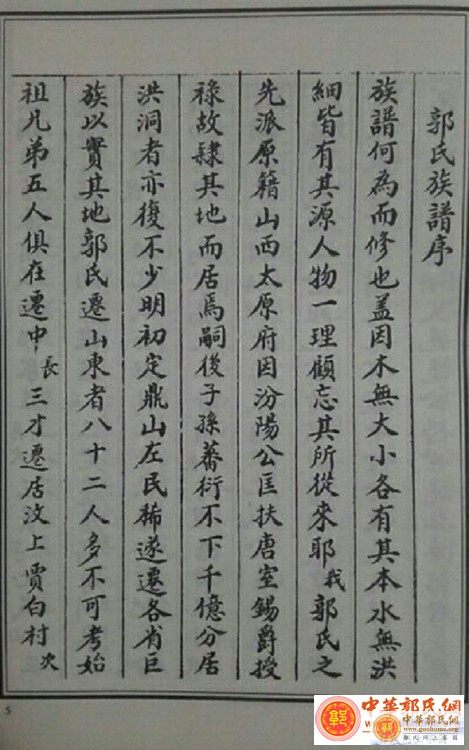 郭氏族譜序
族譜何為而修也蓋因木無大小各有其本水無洪
細皆有其源人物一理顧忘其所從來耶我郭氏之
先派原籍山西太原府因汾陽公匡扶唐室錫爵授
祿故隸其地而居焉嗣後子孫蕃衍不下千億分居
洪洞者亦復不少明初定鼎山左民稀遂遷各省巨
族以實其地郭氏遷山東者八十二人多不可考始
祖凡弟五人俱在遷中長三才遷居汶上賈白村次
5
中華郭氏網
中華郭氏網
www.guohome.org
郭氏網上家園